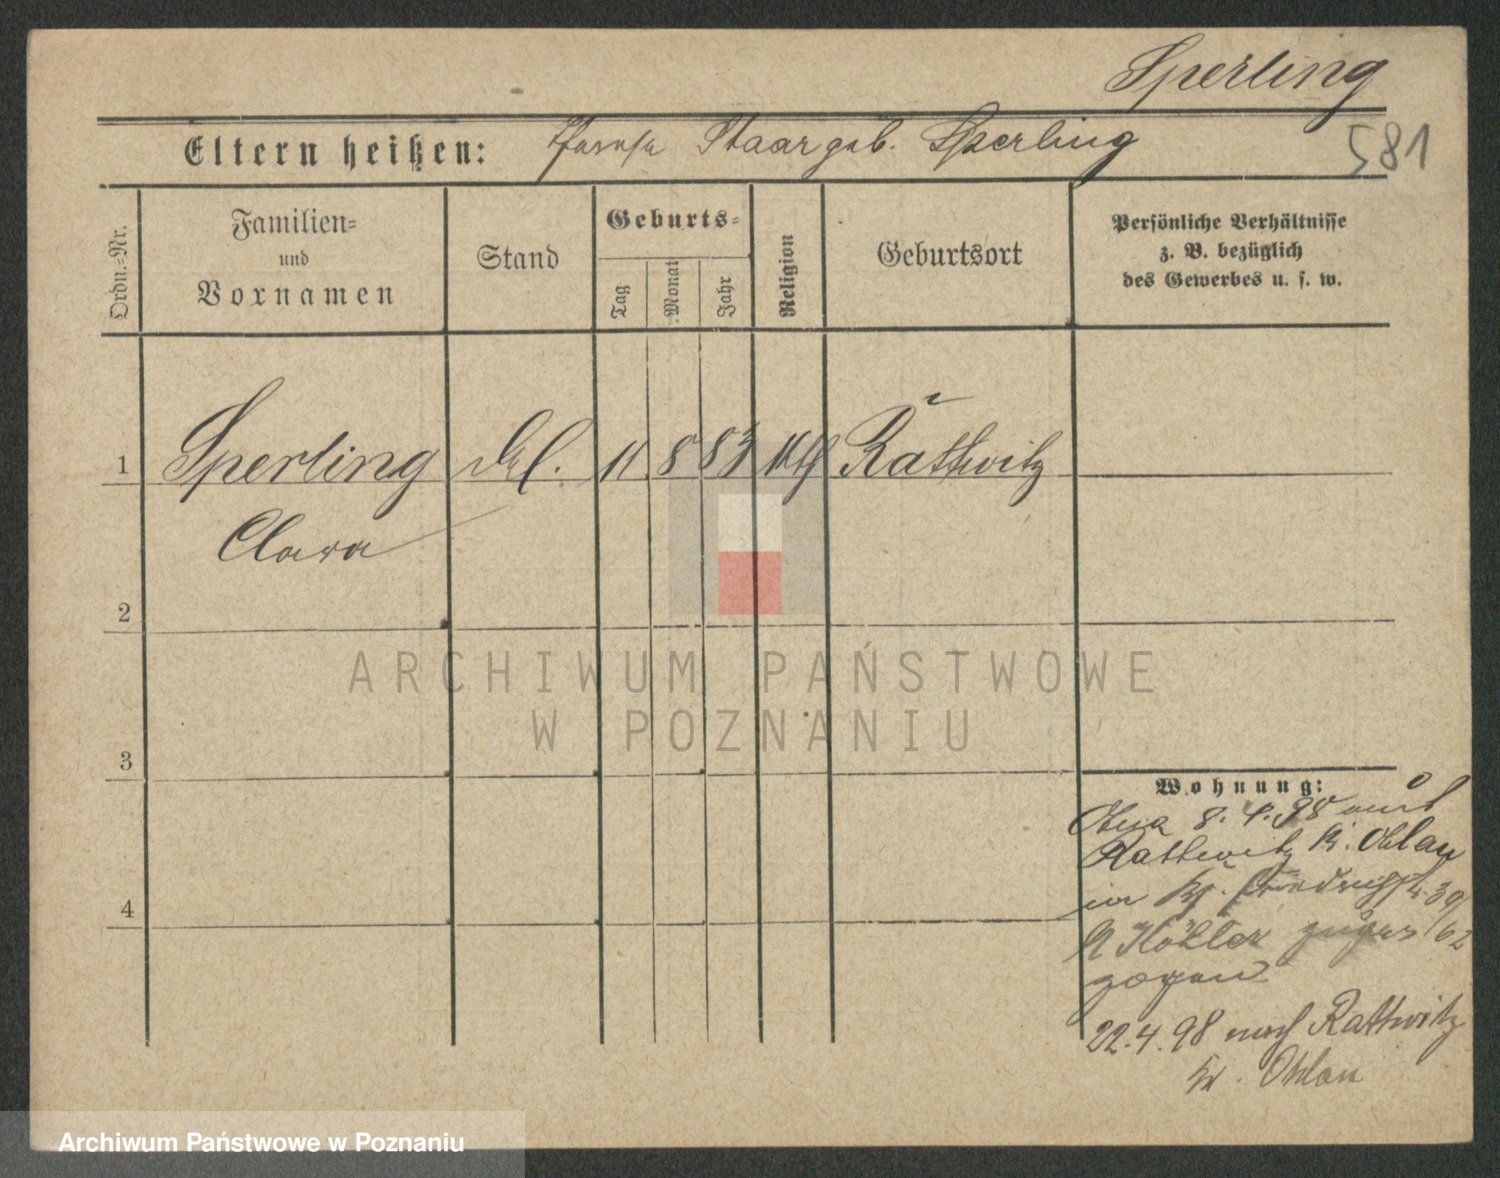 Sperling
Eltern heißen: Staar geb. Sperling
581
Ordn.-Nr.
Familien-
und
Vornamen
Stand
Geburts-
Tag
Monat
Jahr
Religion
Geburtsort
Persönliche Verhältnisse
z. B. bezüglich
des Gewerbes u. s. w.
1 Sperling 11 8 83 kth Rattwitz
Clara
2
3
4
ARCHIWUM PAŃSTWOWE
W POZNANIU
Wohnung:
8. 4. 98 aus
Rattwitz Kr. Ohlau
39/62
Köhler
zogen
22.4.98 nach Rattwitz
Kr. Ohlau
Archiwum Państwowe w Poznaniu